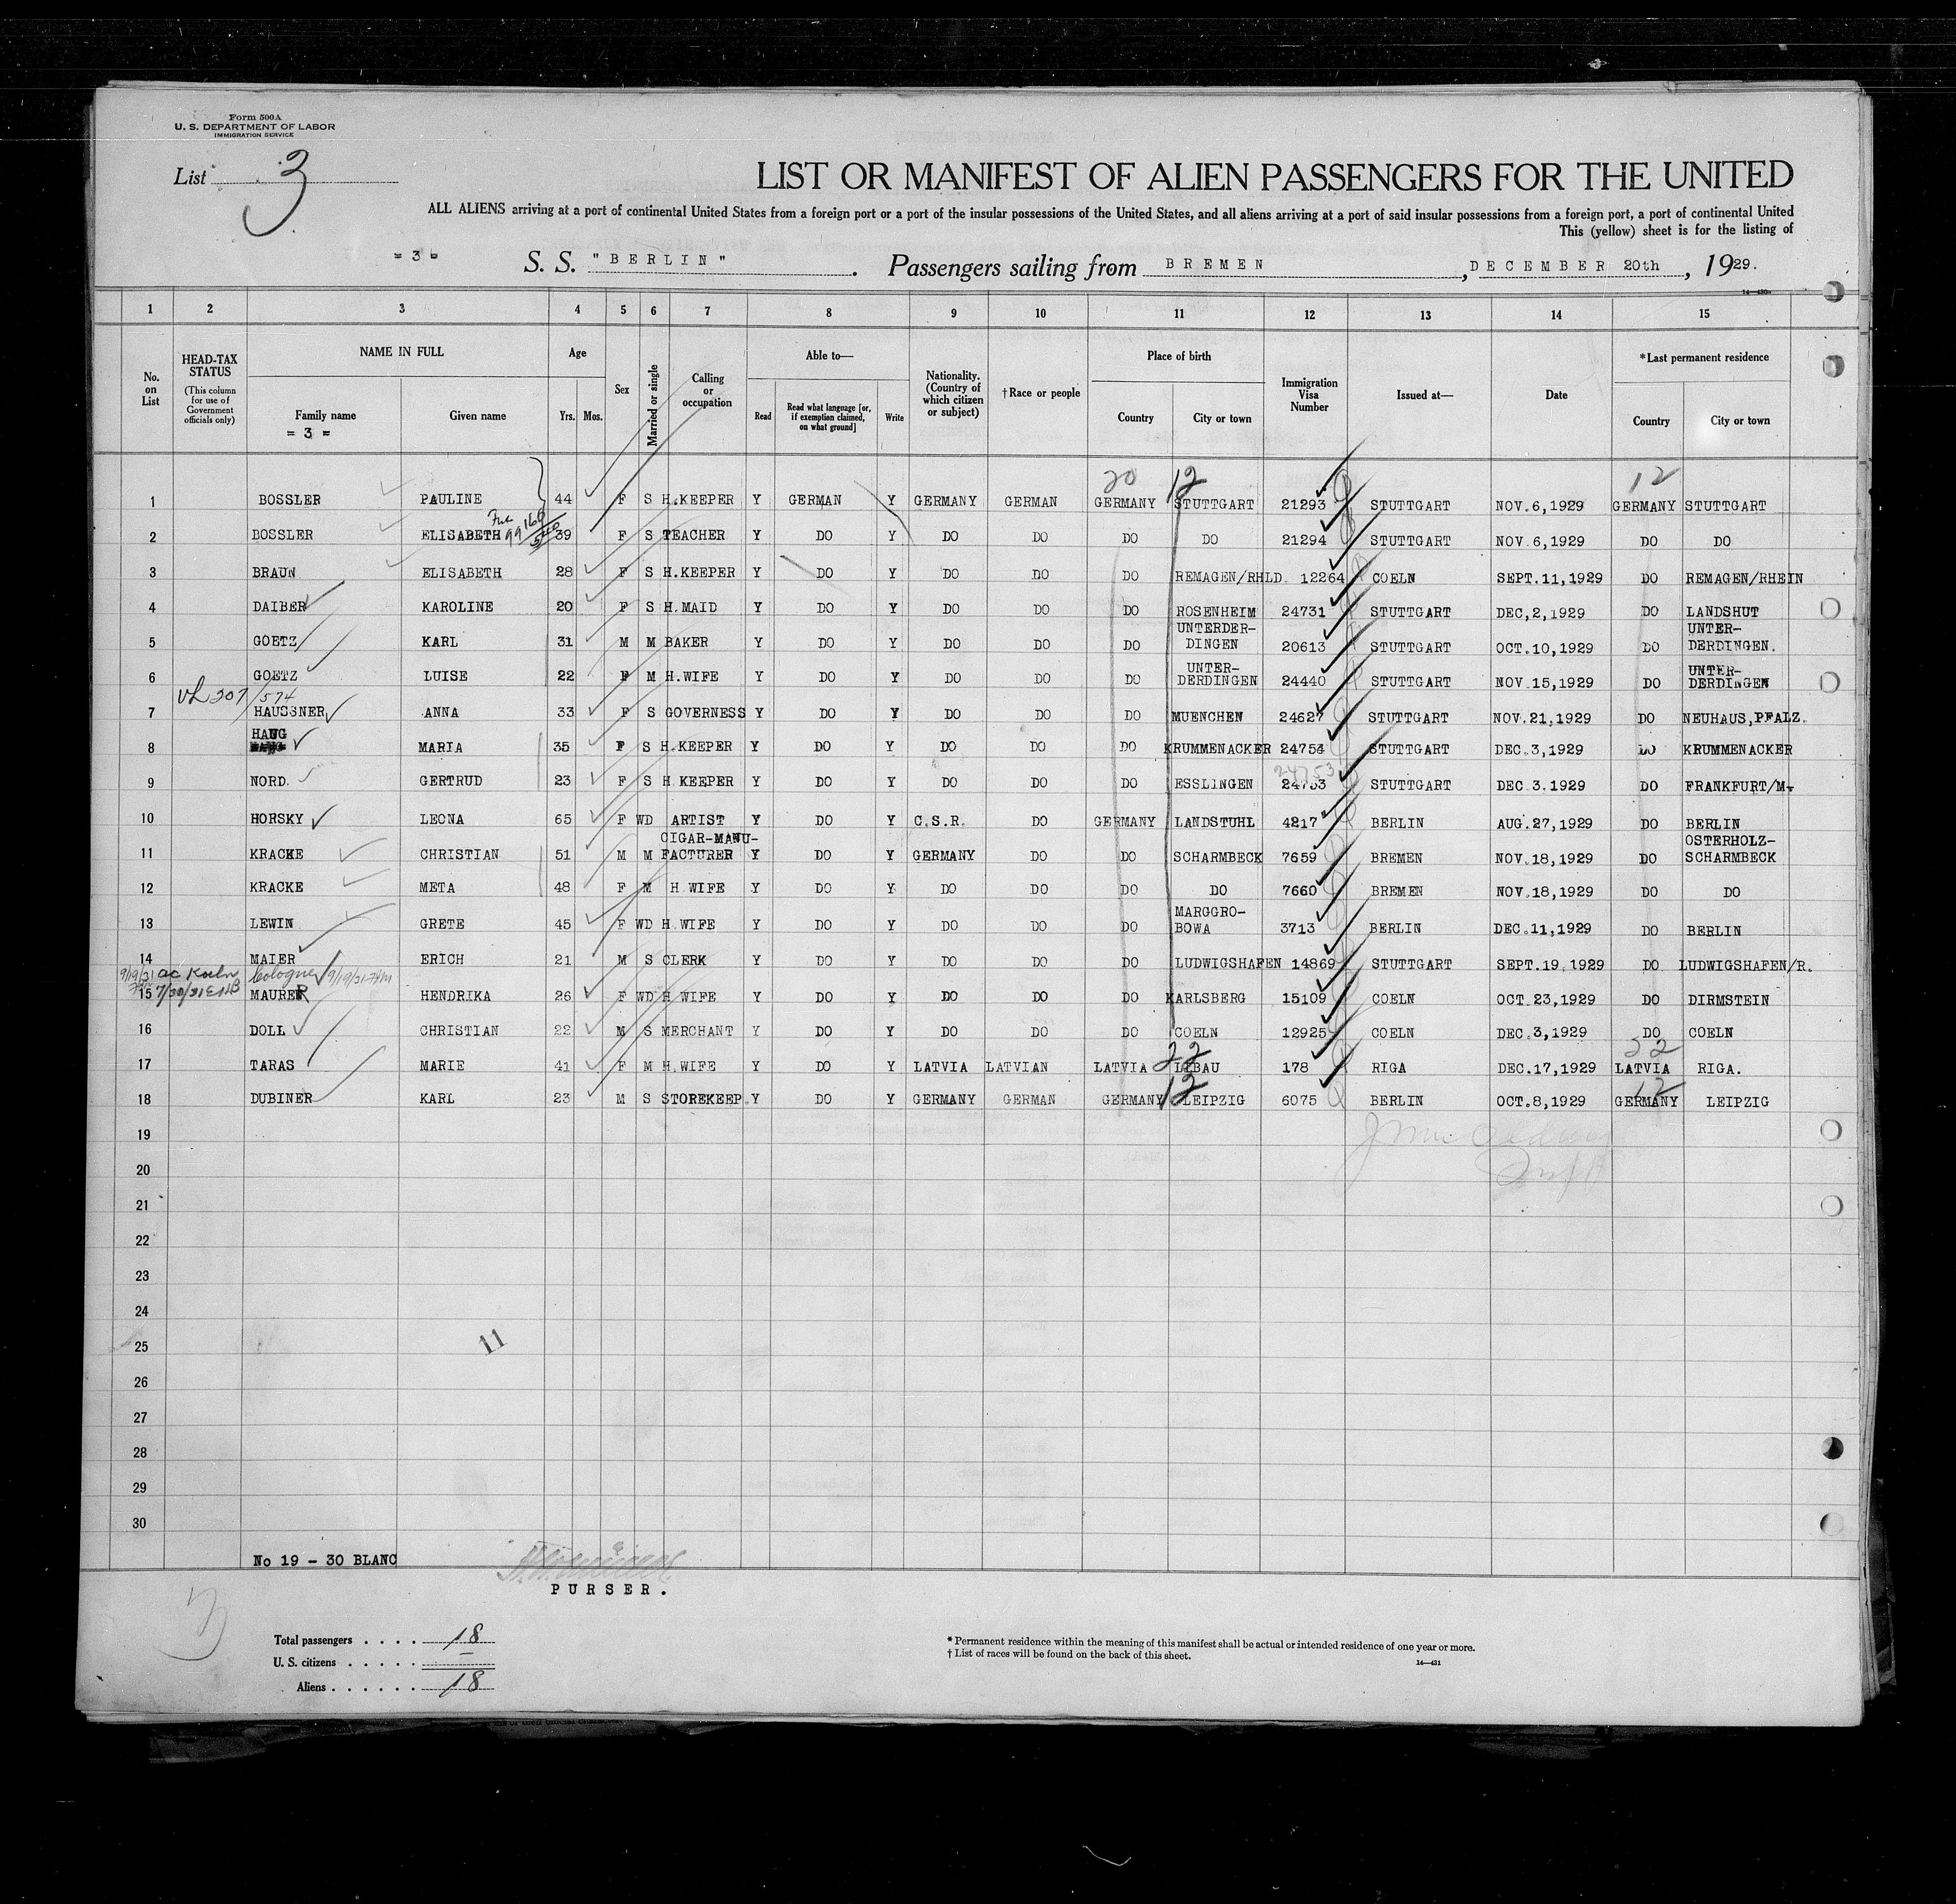 Form 500A
U. S. DEPARTMENT OF LABOR
IMMIGRATION SERVICE
List 3
LIST OR MANIFEST OF ALIEN PASSENGERS FOR THE UNITED
ALL ALIENS arriving at a port of continental United States from a foreign port or a port of the insular possessions of the United States, and all aliens arriving at a port of said insular possessions from a foreign port, a port of continental United
This (yellow) sheet is for the listing of
= 3 =
S. S. "BERLIN". Passengers sailing from BREMEN, DECEMBER 20th, 1929.
14—430
1 2 3 4 5 6 7 8 9 10 11 12 13 14 15
No. on List
HEAD-TAX STATUS (This column for use of Government officials only)
NAME IN FULL
Family name
= 3 =
Given name
Age
Yrs. Mos.
Sex
Married or single
Calling or occupation
Able to—
Read
Read what language [or, if exemption claimed, on what ground]
Write
Nationality. (Country of which citizen or subject)
†Race or people
Place of birth
Country
City or town
Immigration Visa Number
Issued at—
Date
*Last permanent residence
Country
City or town
20 12 12
1 BOSSLER PAULINE 44 F S H.KEEPER Y GERMAN Y GERMANY GERMAN GERMANY STUTTGART 21293 STUTTGART NOV.6,1929 GERMANY STUTTGART
2 BOSSLER ELISABETH 39 F S TEACHER Y DO Y DO DO DO DO 21294 STUTTGART NOV.6,1929 DO DO
3 BRAUN ELISABETH 28 F S H.KEEPER Y DO Y DO DO DO REMAGEN/RHLD. 12264 COELN SEPT.11,1929 DO REMAGEN/RHEIN
4 DAIBER KAROLINE 20 F S H.MAID Y DO Y DO DO DO ROSENHEIM 24731 STUTTGART DEC,2,1929 DO LANDSHUT
5 GOETZ KARL 31 M M BAKER Y DO Y DO DO DO UNTERDER-DINGEN 20613 STUTTGART OCT.10,1929 DO UNTER-DERDINGEN.
6 GOETZ LUISE 22 F M H.WIFE Y DO Y DO DO DO UNTER-DERDINGEN 24440 STUTTGART NOV.15,1929 DO UNTER-DERDINGEN
207/574
7 HAUSSNER ANNA 33 F S GOVERNESS Y DO Y DO DO DO MUENCHEN 24627 STUTTGART NOV.21,1929 DO NEUHAUS,PFALZ.
8 HAUG MARIA 35 F S H.KEEPER Y DO Y DO DO DO KRUMMENACKER 24754 STUTTGART DEC.3,1929 DO KRUMMENACKER
24753
9 NORD. GERTRUD 23 F S H.KEEPER Y DO Y DO DO DO ESSLINGEN 24753 STUTTGART DEC.3.1929 DO FRANKFURT/M.
10 HORSKY LEONA 65 F WD ARTIST Y DO Y C.S.R. DO GERMANY LANDSTUHL 4217 BERLIN AUG.27,1929 DO BERLIN
11 KRACKE CHRISTIAN 51 M M CIGAR-MANU-FACTURER Y DO Y GERMANY DO DO SCHARMBECK 7659 BREMEN NOV.18,1929 DO OSTERHOLZ-SCHARMBECK
12 KRACKE META 48 F M H.WIFE Y DO Y DO DO DO DO 7660 BREMEN NOV.18,1929 DO DO
13 LEWIN GRETE 45 F WD H.WIFE Y DO Y DO DO DO MARGGRO-BOWA 3713 BERLIN DEC.11,1929 DO BERLIN
14 MAIER ERICH 21 M S CLERK Y DO Y DO DO DO LUDWIGSHAFEN 14869 STUTTGART SEPT.19,1929 DO LUDWIGSHAFEN/R.
9/19/31 ac Koeln Cologne 9/19/31
7/30/31
15 MAURER HENDRIKA 26 F WD H.WIFE Y DO Y DO DO DO KARLSBERG 15109 COELN OCT.23,1929 DO DIRMSTEIN
16 DOLL CHRISTIAN 22 M S MERCHANT Y DO Y DO DO DO COELN 12925 COELN DEC.3,1929 DO COELN
22 22
17 TARAS MARIE 41 F M H.WIFE Y DO Y LATVIA LATVIAN LATVIA LIBAU 178 RIGA DEC.17,1929 LATVIA RIGA.
12 12
18 DUBINER KARL 23 M S STOREKEEP. Y DO Y GERMANY GERMAN GERMANY LEIPZIG 6075 BERLIN OCT.8,1929 GERMANY LEIPZIG
19
20
21
22
23
24
25
11
26
27
28
29
30
No 19 - 30 BLANC
PURSER.
Total passengers . . . . 18
U. S. citizens . . . . . . —
Aliens . . . . . . 18
* Permanent residence within the meaning of this manifest shall be actual or intended residence of one year or more.
† List of races will be found on the back of this sheet.
14—431